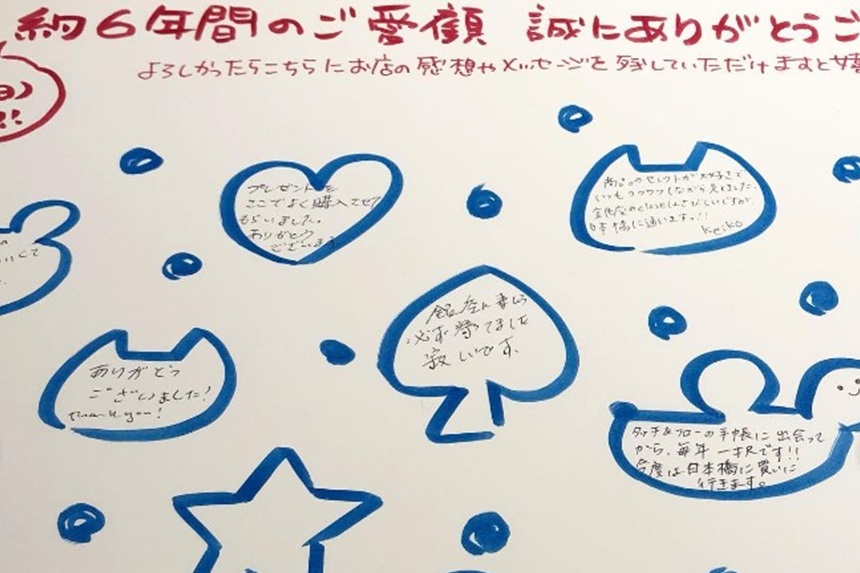 約6年間のご愛顧 誠にありがとうご
よろしかったらこちらにお店の感想やメッセージを残していただけますと嬉
プレゼントを
ここでよく購入させて
もらいました。
ありがとう
ございます
商品のセレクトが大好きで
いつもワクワクしながら見てました。
銀座のくなるのさびしいですが
日本橋に通います。!!
Keiko
銀座に来たら
必ず寄ってました
寂しいです。
ありがとう
ございました!
thank you!
タッチ&フローの手帳に出会って
から、毎年一択です!!
今度は日本橋に買いに
行きます。